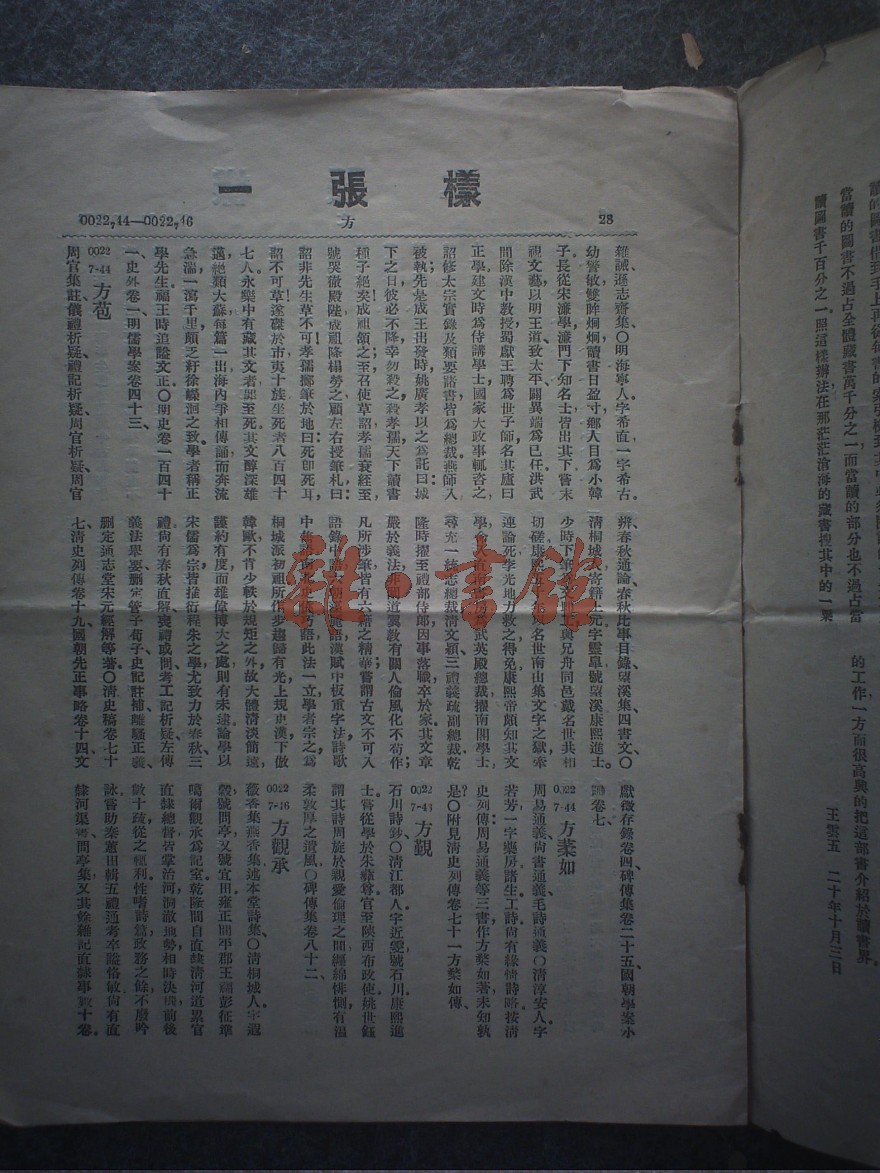 樣張一
28
方
0022₇44—0022₇16
雜誡遜志齋集〇明海寧人字希直一字希古
幼警敏雙眸炯炯讀書日盈寸鄉人目爲小韓
子長從宋濂學濂門下知名士皆出其下嘗末
視文藝以明王道致太平闢異端爲已任洪武
間除漢中敎授蜀獻王聘爲世子師名其廬曰
正學建文時爲侍講學士國家大政事輒咨之
詔修太宗實錄及類要諸書皆爲總裁燕師入
被執先是成王出發時姚廣孝以之爲託曰城
下之日彼必不降幸勿殺之殺孝孺天下讀書
種子絕矣成祖頷之至召使草詔孝孺衰絰至
號哭徹殿陛成祖降榻勞之顧左右授筆札曰
詔非先生草不可孝孺擲筆於地曰死卽死耳
詔不可草遂磔於市夷十族坐死者八百四十
七人永樂中有藏其文者罪至死其文醇深雄
邁絕類大蘇每篇一出海內爭相傳誦而奔流
急湍一瀉千里頗乏紆徐縈洄之致學者稱正
學先生福王時追諡文正〇明史卷一百四十
一史外卷一明儒學案卷四十三
0022
7-44 方苞
周官集註儀禮析疑禮記析疑周官析疑周官
辨春秋通論春秋比事目錄望溪集四書文〇
清桐城人寄籍上元字靈皋號望溪康熙進士
少時下筆爲文
與兄舟同邑戴名世共相
切磋康熙五十
名世南山集文字之獄牽
連論死李光地力救之得免康熙帝頗知其文
學命入直南書房
武英殿總裁擢南閣學士
尋充一統志總裁淸文穎三禮義疏副總裁乾
隆時擢至禮部侍郎因事落職卒於家其文章
嚴於義法非闡道翼敎有關人倫風化不苟作
凡所涉筆皆有六籍之精華嘗謂古文不可入
語錄中語
漢賦中板重字法詩歌
中雋語南北史
語此法一立學者宗之爲
桐城派初祖所作步趨歸有光上規史漢下倣
韓歐不肯少軼於規矩之外故大體清淡簡遠
謹約有度而雄偉博大之處則有未逮論學以
宋儒爲宗皆推衍程朱之學尤致力於春秋三
禮尙有春秋直解喪禮或問考工記析疑左傳
義法舉要刪定管子荀子史記註補離騷正義
刪定通志堂宋元經解等著〇淸史稿卷七十
七淸史列傳卷十九國朝先正事略卷十四文
獻徵存錄卷四碑傳集卷二十五國朝學案小
識卷七
0022
7-44 方葇如
周易通義尙書通義毛詩通義〇清淳安人字
若芳一字藥房諸生工詩尙有緣情詩略按淸
史列傳周易通義等三書作方楘如著未知孰
是〇附見淸史列傳卷七十一方楘如傳
0022
7-43 方觀
石川詩鈔〇淸江都人字近雯號石川康熙進
士嘗從學於朱彝尊官至陝西布政使姚世鈺
謂其詩周旋於親愛倫理之間纏綿悱惻有溫
柔敦厚之遺風〇碑傳集卷八十二
0022
7-16 方觀承
薇香集燕香集述本堂詩集〇淸桐城人字遐
穀號問亭又號宜田雍正間平郡王福彭征準
噶爾觀承爲記室乾隆間自直隸淸河道累官
直隸總督皆掌治河洞澈地勢相時決機前後
數十疏從之輒利性嗜詩篇政務之餘不廢吟
詠嘗助秦蕙田輯五禮通考卒諡恪敏尙有直
隸河渠書問亭集又其餘雜記直隸事數十卷
當讀的圖書不過占全體藏書萬千分之一而當讀的部分也不過占當
讀圖書千百分之一照這樣辦法在那茫茫滄海的藏書搜其中的一粟
的工作一方面很高興的把這部書介紹於讀書界
王雲五 二十年十月三日
雜·書館